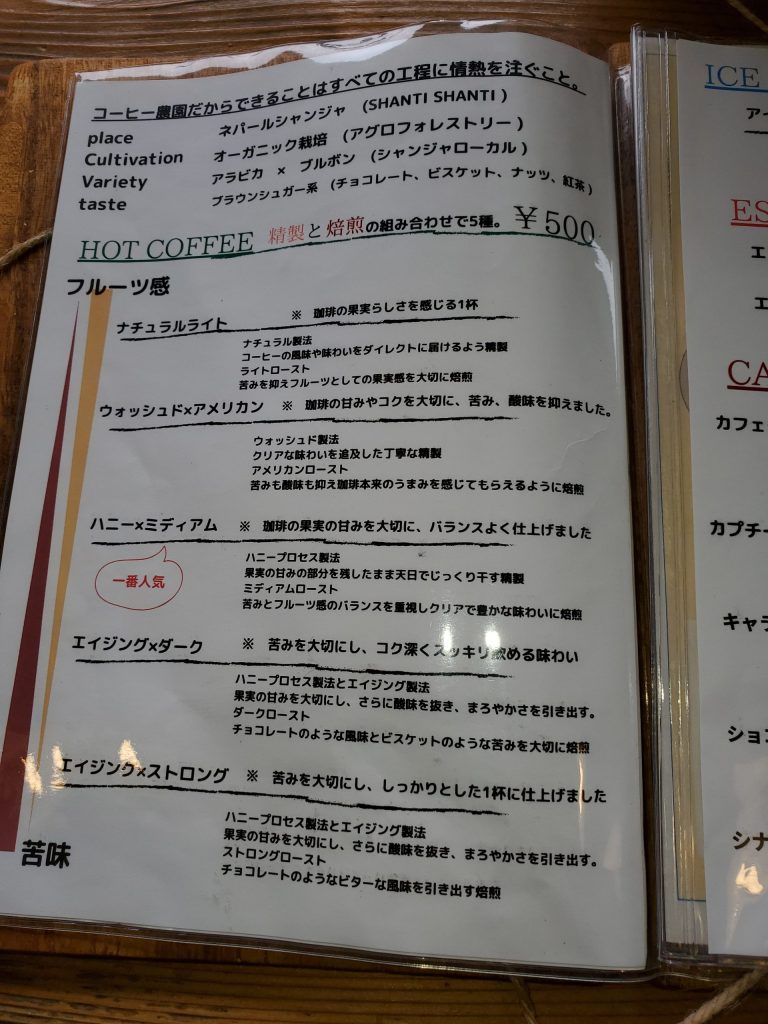 コーヒー農園だからできることはすべての工程に情熱を注ぐこと。
place ネパールシャンジャ (SHANTI SHANTI )
Cultivation オーガニック栽培 (アグロフォレストリー )
Variety アラビカ × ブルボン (シャンジャローカル )
taste ブラウンシュガー系 (チョコレート、ビスケット、ナッツ、紅茶 )
HOT COFFEE 精製と焙煎の組み合わせで5種。 ￥500
フルーツ感
ナチュラルライト ※ 珈琲の果実らしさを感じる1杯
ナチュラル製法
コーヒーの風味や味わいをダイレクトに届けるよう精製
ライトロースト
苦みを抑えフルーツとしての果実感を大切に焙煎
ウォッシュド×アメリカン ※ 珈琲の甘みやコクを大切に、苦み、酸味を抑えました。
ウォッシュド製法
クリアな味わいを追及した丁寧な精製
アメリカンロースト
苦みも酸味も抑え珈琲本来のうまみを感じてもらえるように焙煎
ハニー×ミディアム ※ 珈琲の果実の甘みを大切に、バランスよく仕上げました
一番人気
ハニープロセス製法
果実の甘みの部分を残したまま天日でじっくり干す精製
ミディアムロースト
苦みとフルーツ感のバランスを重視しクリアで豊かな味わいに焙煎
エイジング×ダーク ※ 苦みを大切にし、コク深くスッキリ飲める味わい
ハニープロセス製法とエイジング製法
果実の甘みを大切にし、さらに酸味を抜き、まろやかさを引き出す。
ダークロースト
チョコレートのような風味とビスケットのような苦みを大切に焙煎
エイジング×ストロング ※ 苦みを大切にし、しっかりとした1杯に仕上げました
ハニープロセス製法とエイジング製法
果実の甘みを大切にし、さらに酸味を抜き、まろやかさを引き出す。
ストロングロースト
チョコレートのようなビターな風味を引き出す焙煎
苦味
ICE
アイ
ES
エ
エ
CA
カフェ
カプチー
キャラ
ショコ
シナ